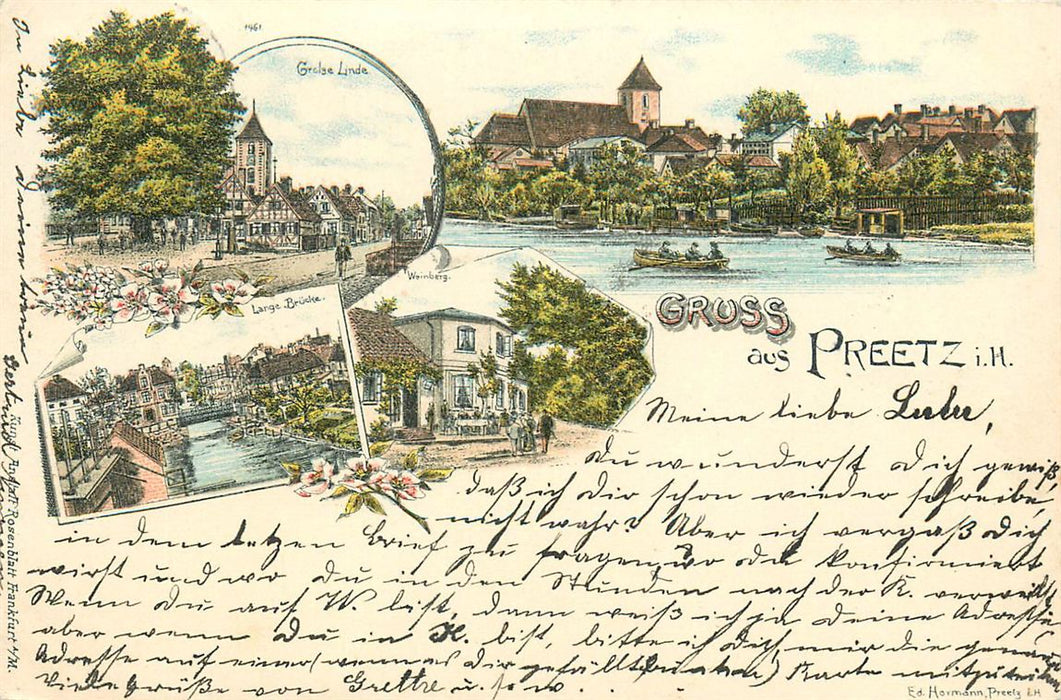 1961
Große Linde
Weinberg.
Lange Brücke.
GRUSS
aus PREETZ i. H.
Meine liebe
Du wunderst dich gewiß,
daß ich Dir schon wieder schreibe,
nicht wahr? Aber ich vergaß Dich
in dem letzen Brief zu fragen, wo du konfirmiert
wirst und wo Du in den Stunden nach der K. verweilst
Wenn Du auf W. bist, dann weiß ich ja deine Adresse
aber wenn Du in H. bist, bitte ich Dich, mir die genaue
Adresse auf einer (wenn es Dir gefällt) Karte mitzuteilen
Viele Grüße von Grethe u. s. w. . .
In Liebe Deine
Kunst Anstalt Rosenblatt Frankfurt a/M.
Ed. Hormann, Preetz i.H.